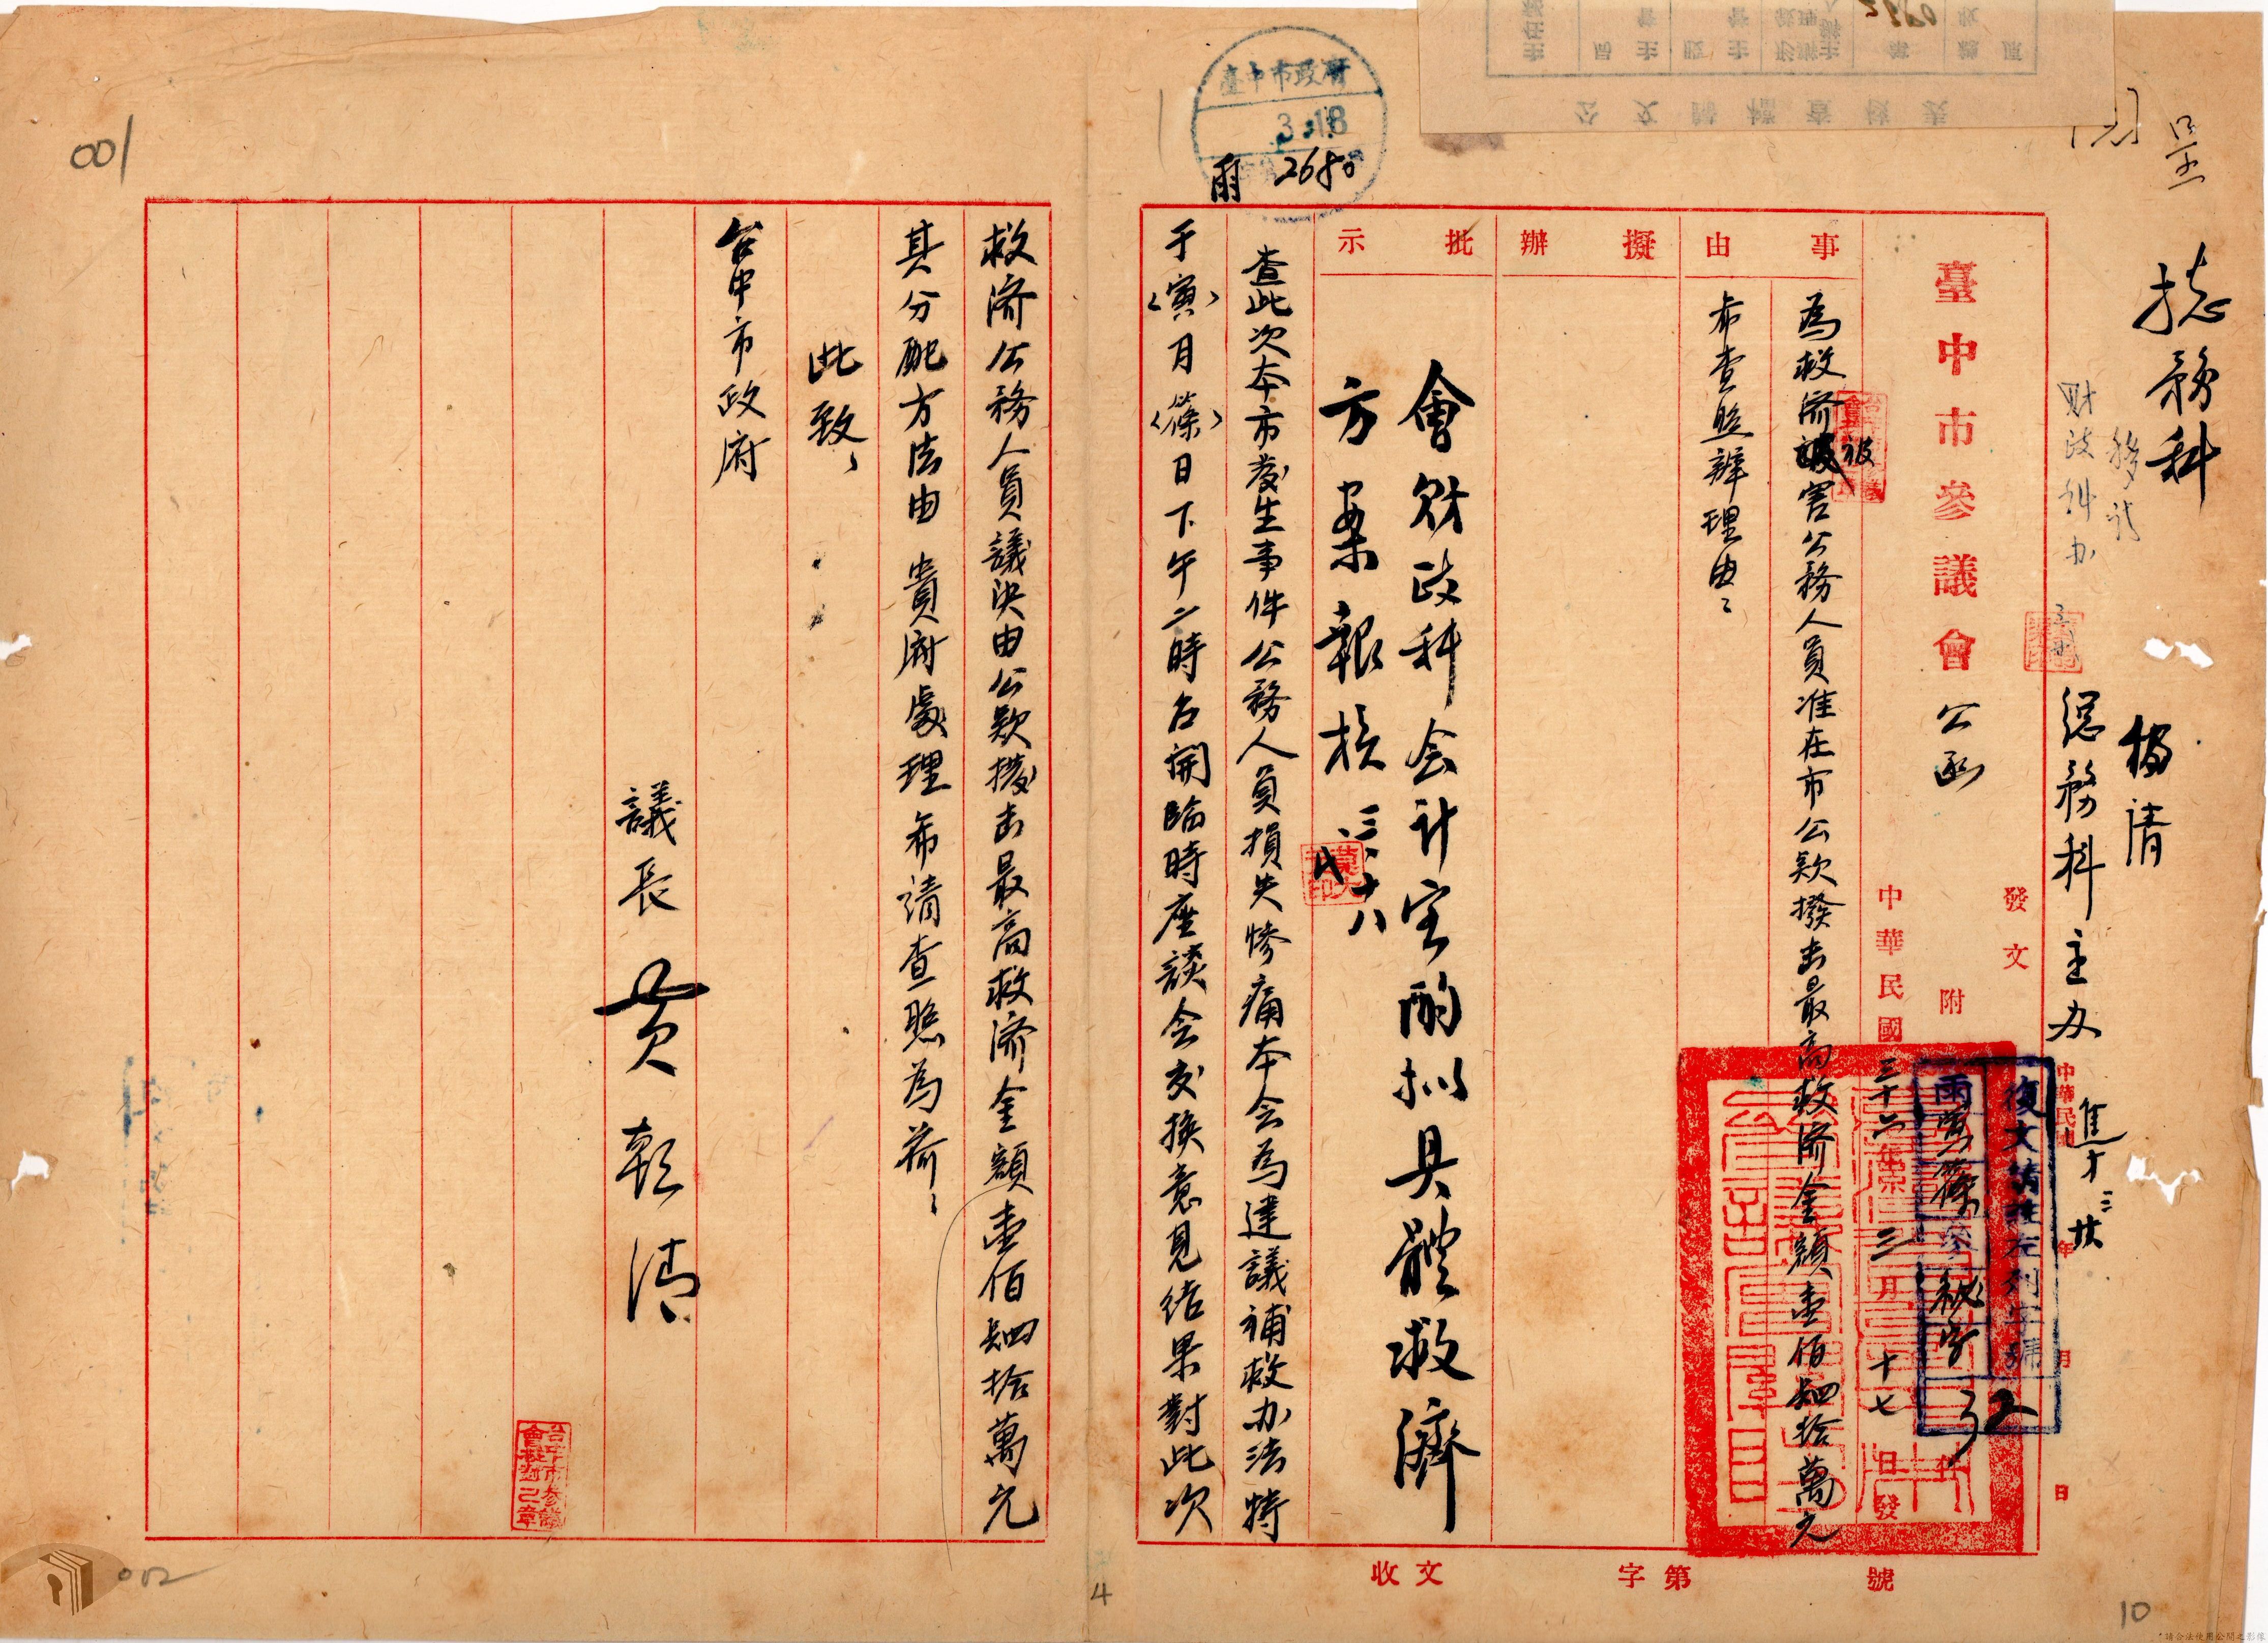 呈
閱
總務科
移請
财政科办
擬請
總務科主办
臺中市參議會公函
發文
附件
中華民國三十六年三月十七日發
復文請註左列字號
雨寅篠參秘字
32
中華民國 年 月 日
事由
為救濟被害公務人員准在市公款撥出最高救濟金額壹佰肆拾萬元
希查照辦理由
擬辦
批示
會财政科会计室酌拟具體救濟
方案報核 三、十八
臺中市政府
3.18
雨 2680
查此次本市發生事件公務人員損失慘痛本会為建議補救办法特
于(寅)月(篠)日下午二時召開臨時座談会交換意見結果對此次
救濟公務人員議決由公款撥出最高救濟金額壹佰肆拾萬元
其分配方法由 貴府處理希請查照為荷、
此致、
台中市政府
議長 黃朝清
台中市參議會校對之章
收文 字第 號
公文歸檔查核表
001
002
4
10